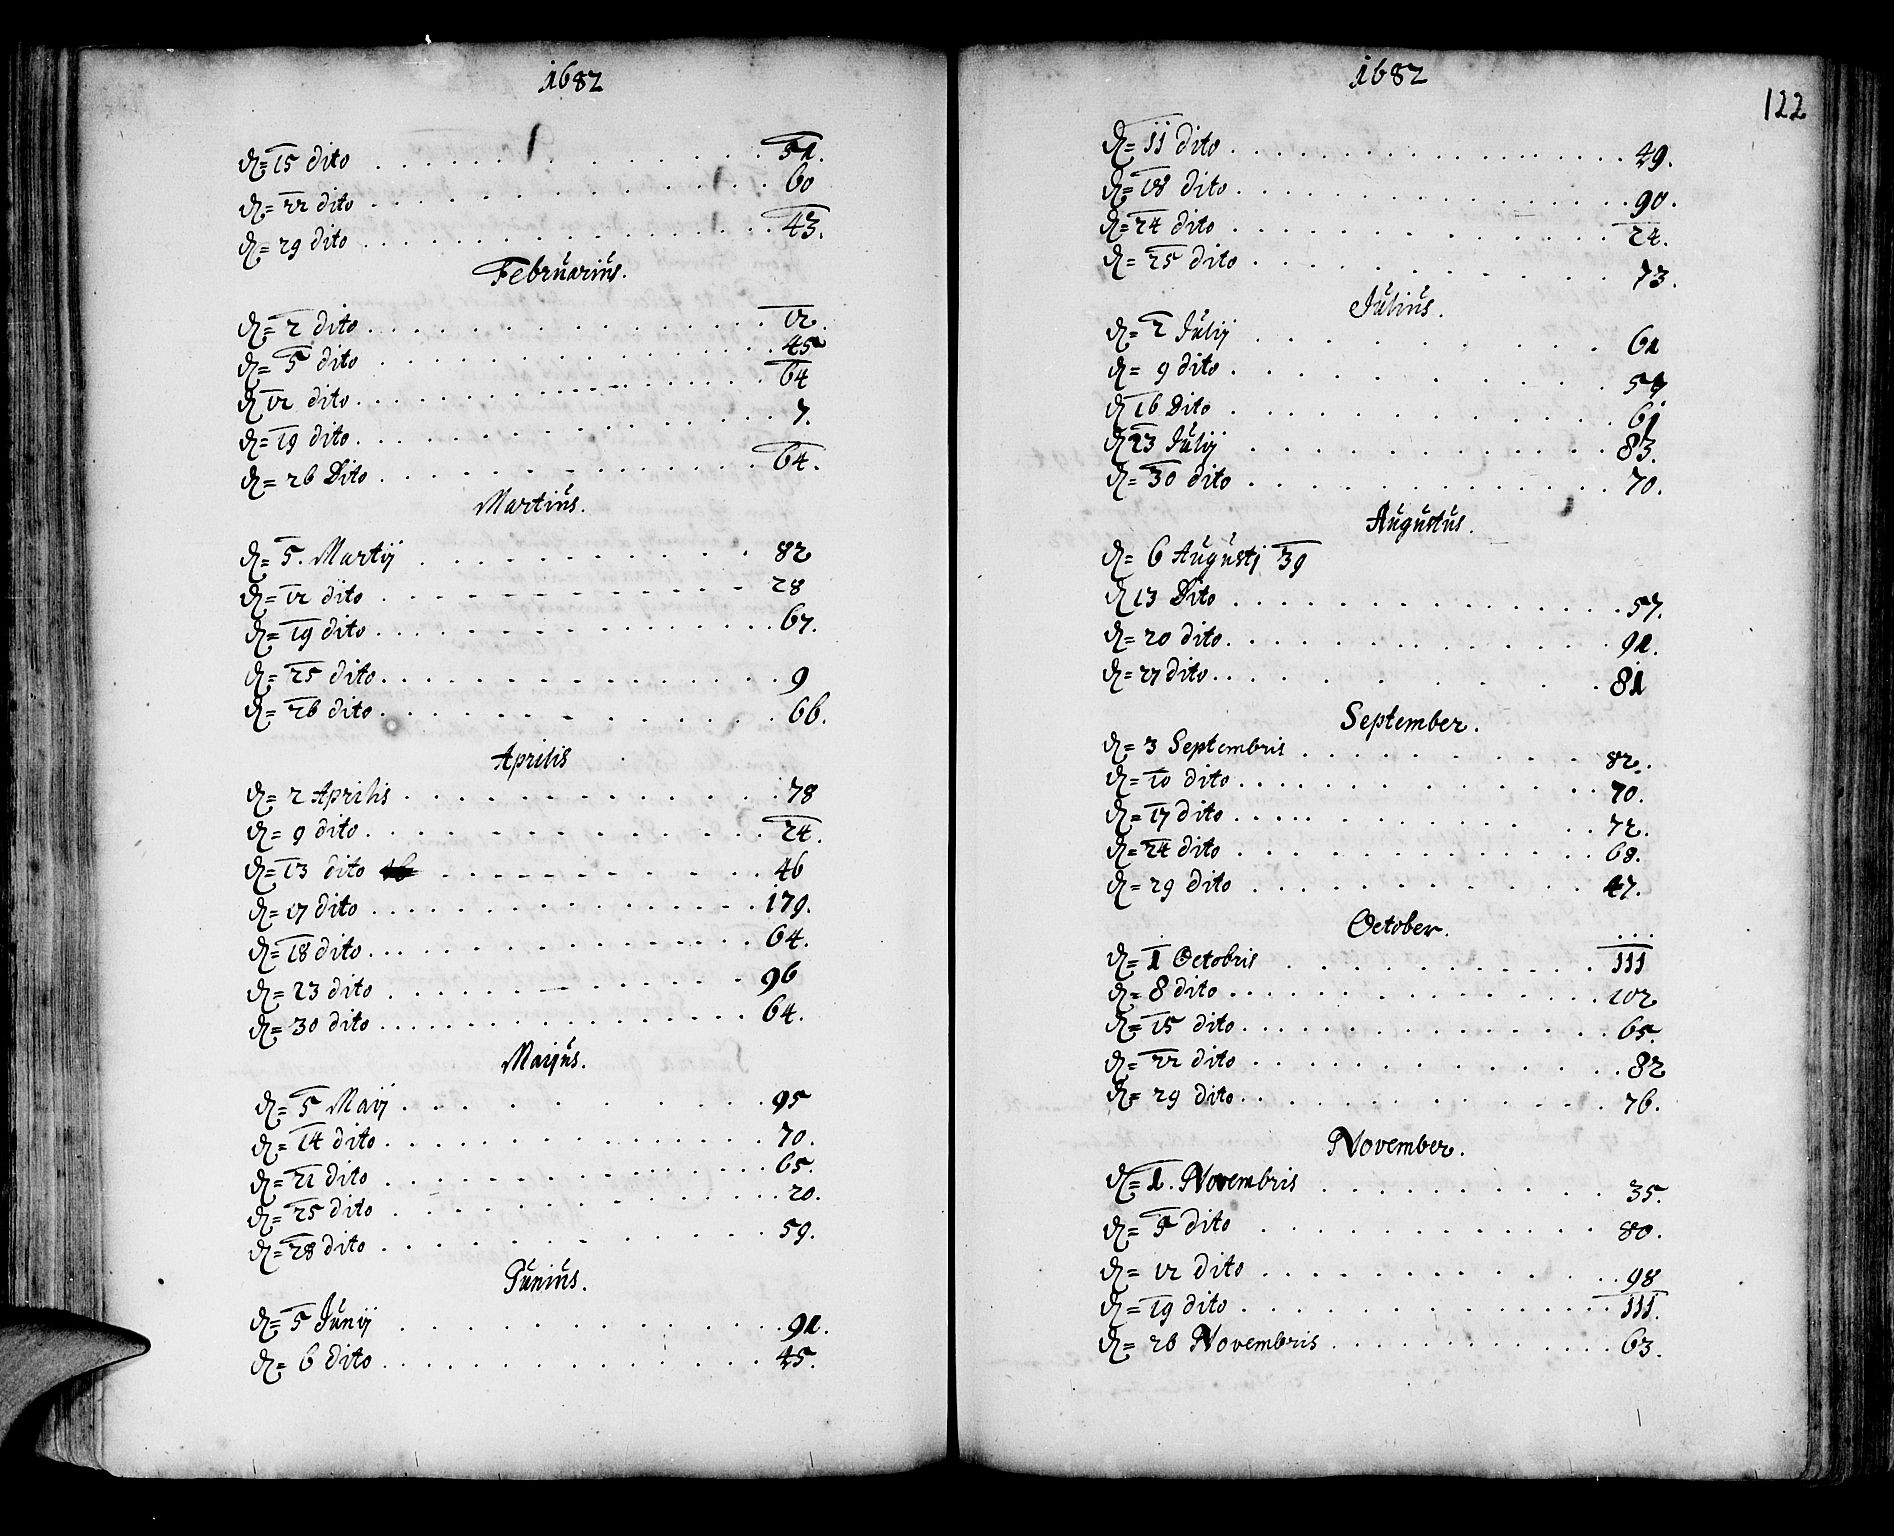 1682
D= 15 dito . . . . . 51.
D= 22 dito . . . . . 60
D= 29 dito . . . . . 43.
Februarius.
D= 2 dito . . . . . 12.
D= 5 dito . . . . . 45
D 12 dito . . . . . 64
D= 19 dito . . . . . 7.
D= 26 Dito . . . . . 64.
Martius.
D= 5. Martij . . . . . 82
D= 12 dito . . . . . 28
D= 19 dito . . . . . 67.
D= 25 dito . . . . . 9
D= 26 dito . . . . . 66.
Aprilis
D= 2 Aprilis . . . . . 78
D= 9 dito . . . . . 24.
D= 13 dito . . . . . 46
D= 17 dito . . . . . 179.
D= 18 dito . . . . . 64.
D= 23 dito . . . . . 96
D= 30 dito . . . . . 64.
Maijus.
D= 5 Maij . . . . . 95
D= 14 dito . . . . . 70.
D= 21 dito . . . . . 65.
D= 25 dito . . . . . 20.
D= 28 dito . . . . . 59.
Junius.
D= 5 Junij . . . . . 91.
D= 6 dito . . . . . 45.
1682
122
D= 11 dito . . . . . 49.
D= 18 dito . . . . . 90.
D= 24 dito . . . . . 24.
D= 25 dito . . . . . 73.
Julius.
D= 2 Julij . . . . . 61
D= 9 dito . . . . . 57
D 16 Dito . . . . . 61
D 23 Julij . . . . . 83.
D= 30 dito . . . . . 70.
Augustus.
D= 6 Augustj 39
D 13 Dito . . . . . 57.
D= 20 dito . . . . . 91.
D= 27 dito . . . . . 81
September.
D= 3 Septembris . . . . . 82.
D= 10 dito . . . . . 70.
D= 17 dito . . . . . 72.
D= 24 dito . . . . . 68.
D= 29 dito . . . . . 47.
October.
D= 1 Octobris . . . . . 111
D= 8 dito . . . . . 102
D= 15 dito . . . . . 65.
D= 22 dito . . . . . 82
D= 29 dito . . . . . 76.
November.
D= 1. Novembris . . . . . 35.
D= 5 dito . . . . . 80.
D= 12 dito . . . . . 98
D= 19 dito . . . . . 111.
D= 26 Novembris . . . . . 63.